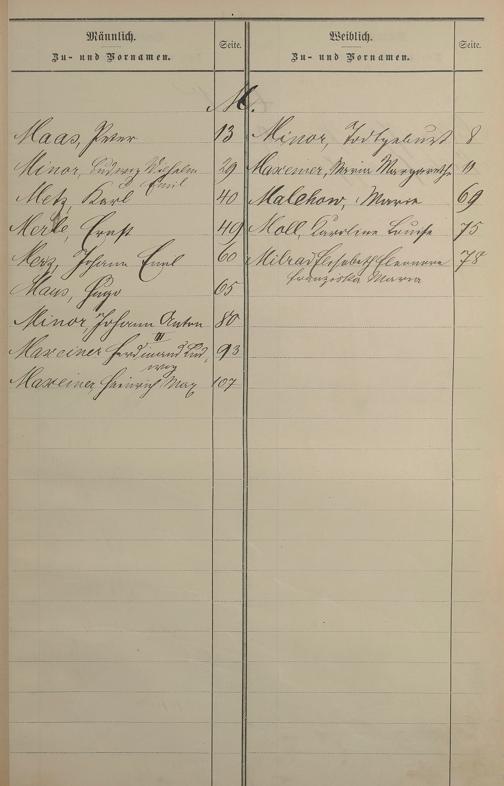 Männlich.
Zu- und Vornamen.
Seite.
Weiblich.
Zu- und Vornamen.
Seite.
M.
Maas, Peter 13
Minor, Ludwig Wilhelm 29
Emil
Metz, Karl 40
Merle, Ernst 49
Merz, Johann Emil 60
Maus, Hugo 65
Minor, Johann Anton 80
III
Maxeiner Ferdinand Lud- 93
wig
Maxeiner, Heinrich Max 107
Minor, Todtgeburt 8
Maxeiner, Maria Margarethe 11
Malchow, Marie 69
Moll, Karoline Louise 75
Milrad Elisabeth Eleonore 78
Franziska Maria